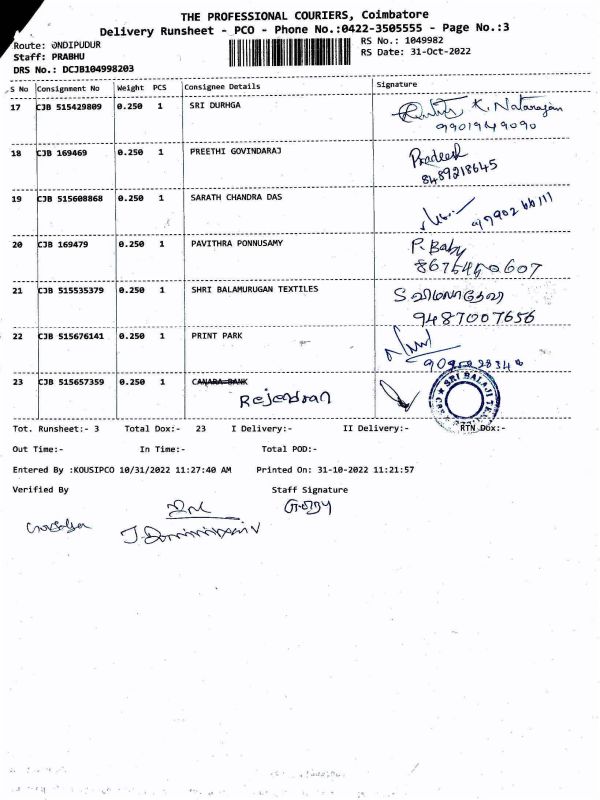 THE PROFESSIONAL COURIERS, Coimbatore
Delivery Runsheet - PCO - Phone No.:0422-3505555 - Page No.:3
Route: ONDIPUDUR
RS No.: 1049982
Staff: PRABHU
RS Date: 31-Oct-2022
DRS No.: DCJB104998203
S No Consignment No Weight PCS Consignee Details Signature
17 CJB 515429809 0.250 1 SRI DURHGA K. Natarajan
9901949090
18 CJB 169469 0.250 1 PREETHI GOVINDARAJ Pradeesh
8489218645
19 CJB 515608868 0.250 1 SARATH CHANDRA DAS
20 CJB 169479 0.250 1 PAVITHRA PONNUSAMY P. Baby
21 CJB 515535379 0.250 1 SHRI BALAMURUGAN TEXTILES
9487007656
22 CJB 515676141 0.250 1 PRINT PARK
23 CJB 515657359 0.250 1 CANARA BANK
Rejendran
SRI BALAJI
Tot. Runsheet:- 3 Total Dox:- 23 I Delivery:- II Delivery:- RTN Dox:-
Out Time:- In Time:- Total POD:-
Entered By :KOUSIPCO 10/31/2022 11:27:40 AM Printed On: 31-10-2022 11:21:57
Verified By Staff Signature